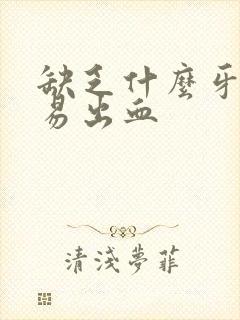 缺乏什麼牙
易出血
清淺夢菲